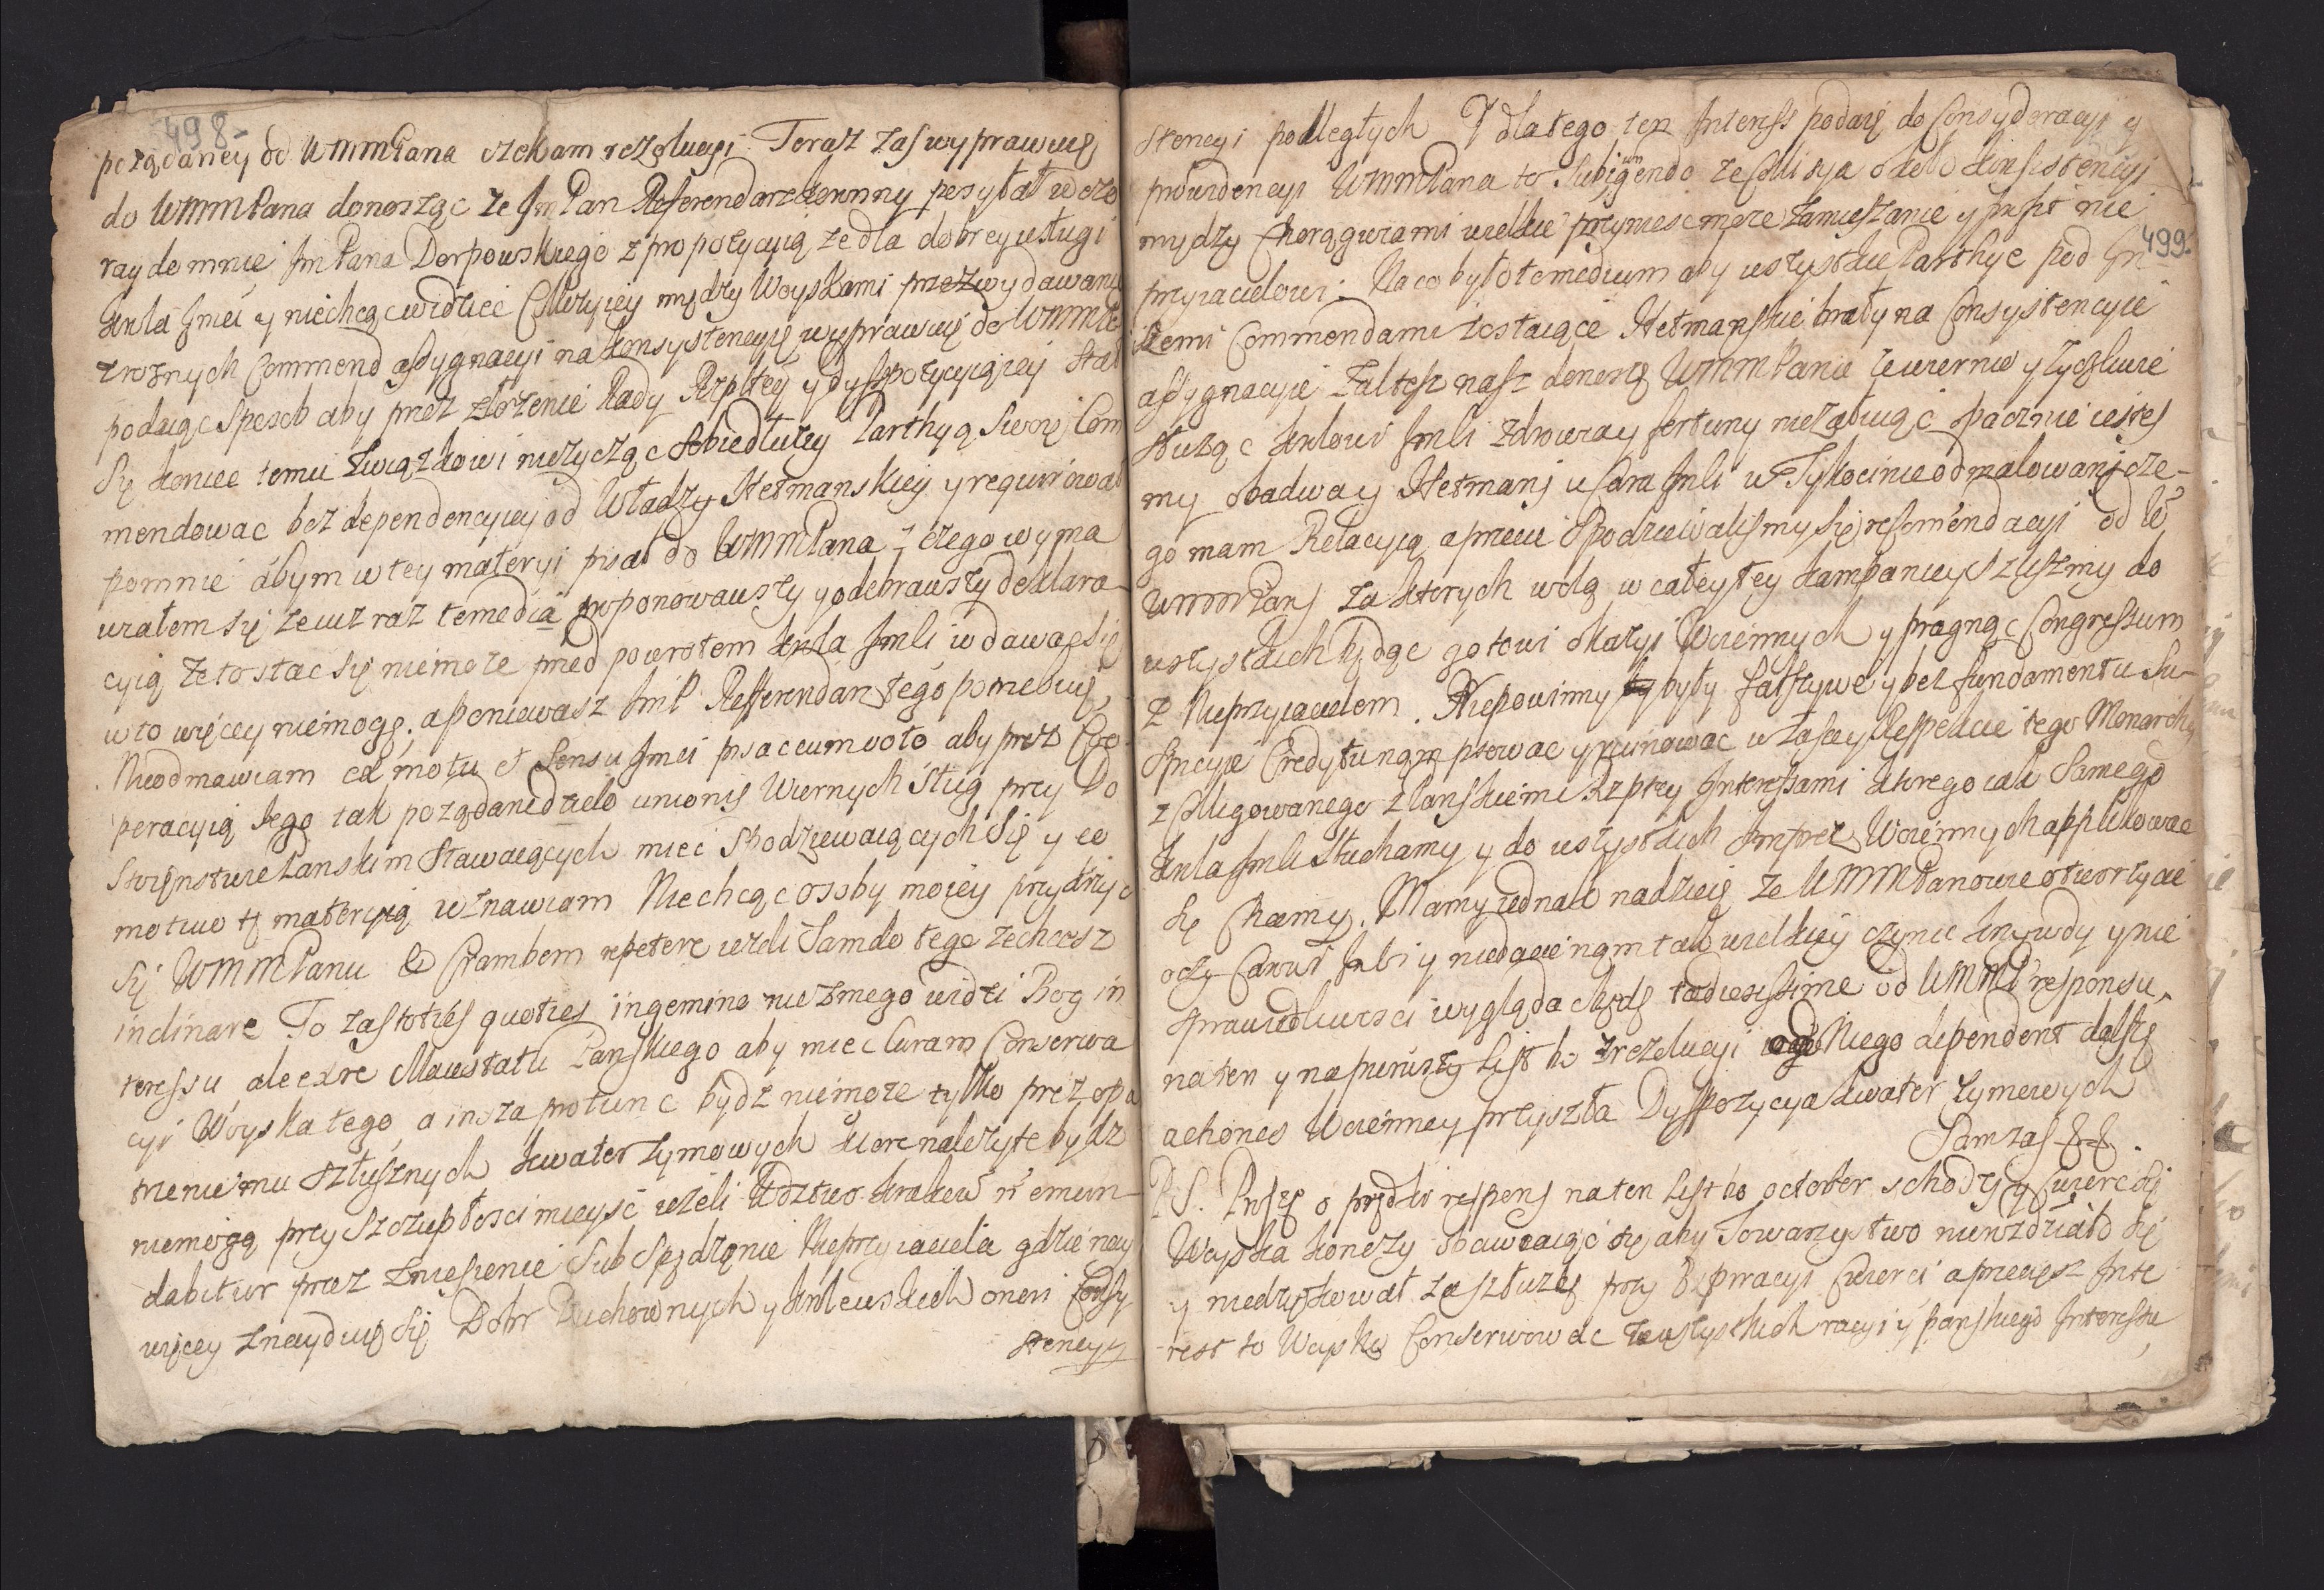 498
pożądaney od WMMPana czekam rezolucyi. Teraz zas wyprawuię
do WMMPana donosząc ze Jm Pan Referendarz koronny posyłał wczo
ray do mnie Jm Pana Dorpowskiego z propozycyią ze dla dobrey usługi
Krola Jmci y niechcąc widziec Collizyiey między Woyskami przez wydawany
z roznych Commend assygnacyi na konsystencyię wyprawuię do WMMPa
podaiąc sposob aby przez złozenie Rady Rzpltey y dyspozycyią iey stał
się koniec temu związkowi niezycząc sobie dłuzey Parthyą swoię Com
mendowac bez dependencyiey od Władzy Hetmanskiey y requirował
pomnie abym w tey materyi pisał do WMMPana z czego wyma
wiałem się ze iusz raz te media proponowawszy y odebrawszy deklara
cyią ze to stac się niemoze przed powrotem Krola Jmci wdawac się
w to więcey niemogę. a poniewasz Jm P. Refferendarz tego potrzebuie,
Nieodmawiam ex motu et sensu Jmci pisac cum voto aby przez Coo
peracyią Jego tak pożądane dzieło unionis Wiernych sług przy Do
stoienstwie Panskim stawaiących miec spodziewaiących się y eo
motivo tę materyią wznawiam Niechcąc osoby moiey przydrzyc
się WMMPanu & Crambem repetere iezeli sam do tego zechcesz
inclinare To zas toties quoties ingemino nie z mego widzi Bog in
teressu, ale ex re Maiestatu Panskiego aby miec Curam Conserwa
cyi Woyska tego, a insza pro tunc bydz niemoze tylko przez opa
trzenie mu słusznych kwater zymowych ktore nalezyte bydz
niemogą przy szczupłosci mieysc iezeli Wdztwo Krakow: n: emun
dabitur przez zniesienie Sub spędzęnie Nieprzyiaciela gdzie nay
więcey znayduię się Dobr Duchownych y Krolewskich oneri Consy
stencyi
499
stencyi podległych Y dlatego ten Interess podaię do Consyderacyi y
prowidencyi WMMPana to Subiungendo ze Collizya około Konsistencyi
mydzy Chorągwiami wielkie przyniesc moze zamieszanie y passt nie
przyiacielowi. Na co było te medium aby wszystkie Parthye pod In
szemi Commendami zostaiące Hetmanskie brały na Consystencyie
assygnacyie Zal tesz nasz donoszę WMMPanu ze wiernie y zyczliwie
słuząc Krolowi Jmci zdrowia y fortuny nieząłuiąc opacznie iestes
my obadwa y Hetmani u Cara Jmci w Tykocinie odmalowani cze-
go mam Relacyią a przecie spodziewalismy się rekomendacyi od W
WMMPanj za ktorych wolą w całey tey kampaniey szlismy do
wszystkich będąc gotowi okazyi Woiennych y pragnąc Congressum
z Nieprzyiacielem. Niepowinny by były fałszywe y bez fundamentu Su-
spicyie Credytu nam psowac y ruinowac w Łascey Respekcie tego Monarchy
z Colligowanego z Panskiemi Rzptey Interessami ktorego iak samego
Krola Jmci słuchamy y do wszystkich Imprez Woiennych applikowac
się Chcemy. Mamy iednak nadzieię ze WMMPanowie otworzycie
oczy Carowi Jmci y niedacie nam tak wielkiey czynic krzywdy y nie
sprawiedliwosci wyglądac będę tædiosissime od WMMP responsu,
na ten y na pierwszy List bo z rezolucyi od Niego dependent dalsze
achones Woienney przyszła Dyspozycya kwater zymowych
Sam zas &. &.
P.S. Proszę o prędki respons na ten List bo october schodzi y Cwierc się
Woyska konczy obawiaiąc się aby Towarzystwo nierozdziało się
y niedziękował za słuzbę przy Expiracyi Cwierci, a przeciesz Inte
rest to Woysko Conserwowac ze wszystkich racyi y panskiego Interessu,